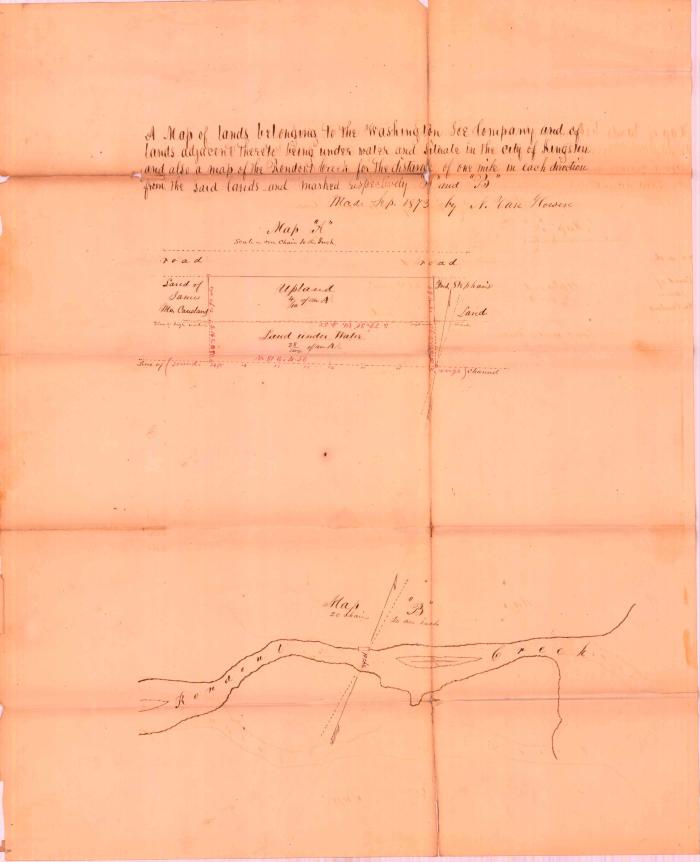 A Map of lands belonging to the Washington Ice Company and of
lands adjacent thereto being under water and situate in the city of Kingston
and also a map of the Rondout Creek for the distance of one mile in each direction
from the said lands and marked respectively "A" and "B"
Made Sep. 1873 by A. Case
Map "A"
Scale one Chain to the Inch
road road
Land of
James
Mc Causland
Upland
of an A.
Land
Land under Water
of an A.
Line of channel
Map "B"
20 chain to one inch
Rondout Creek